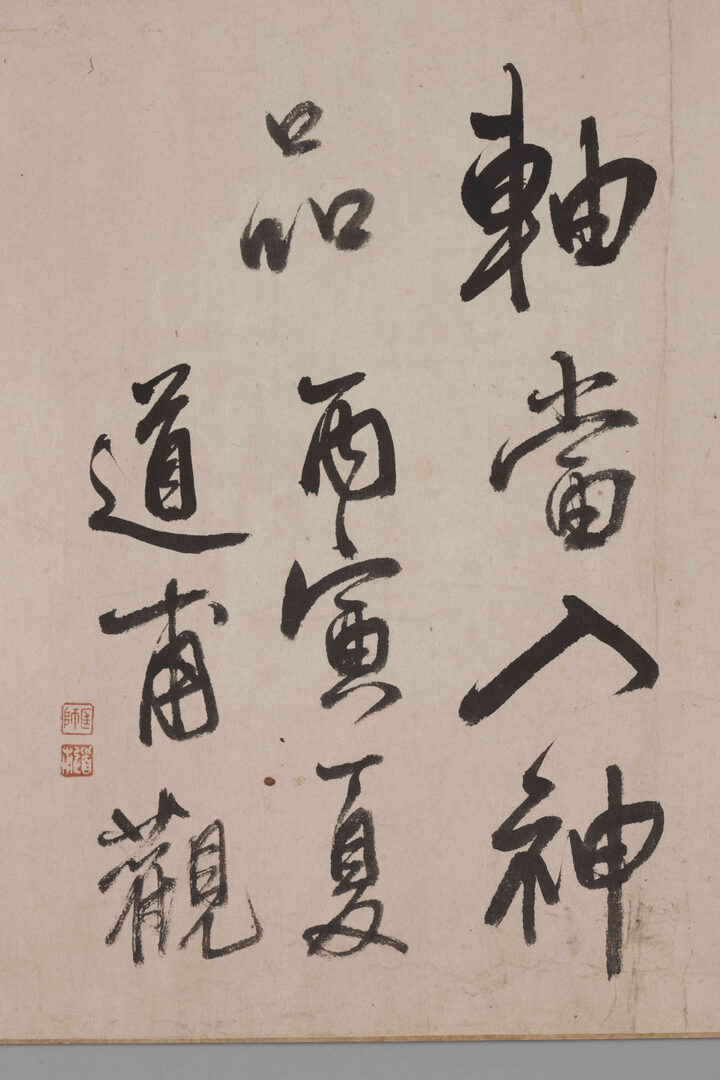 軸當入神
品 丙寅夏
道甫觀
匡師
道甫